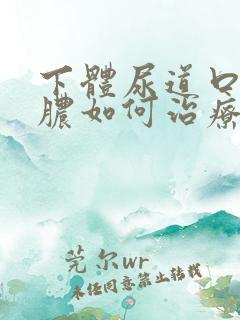 下體尿道口
膿如何治療
莞尔wr
未经同意禁止转载